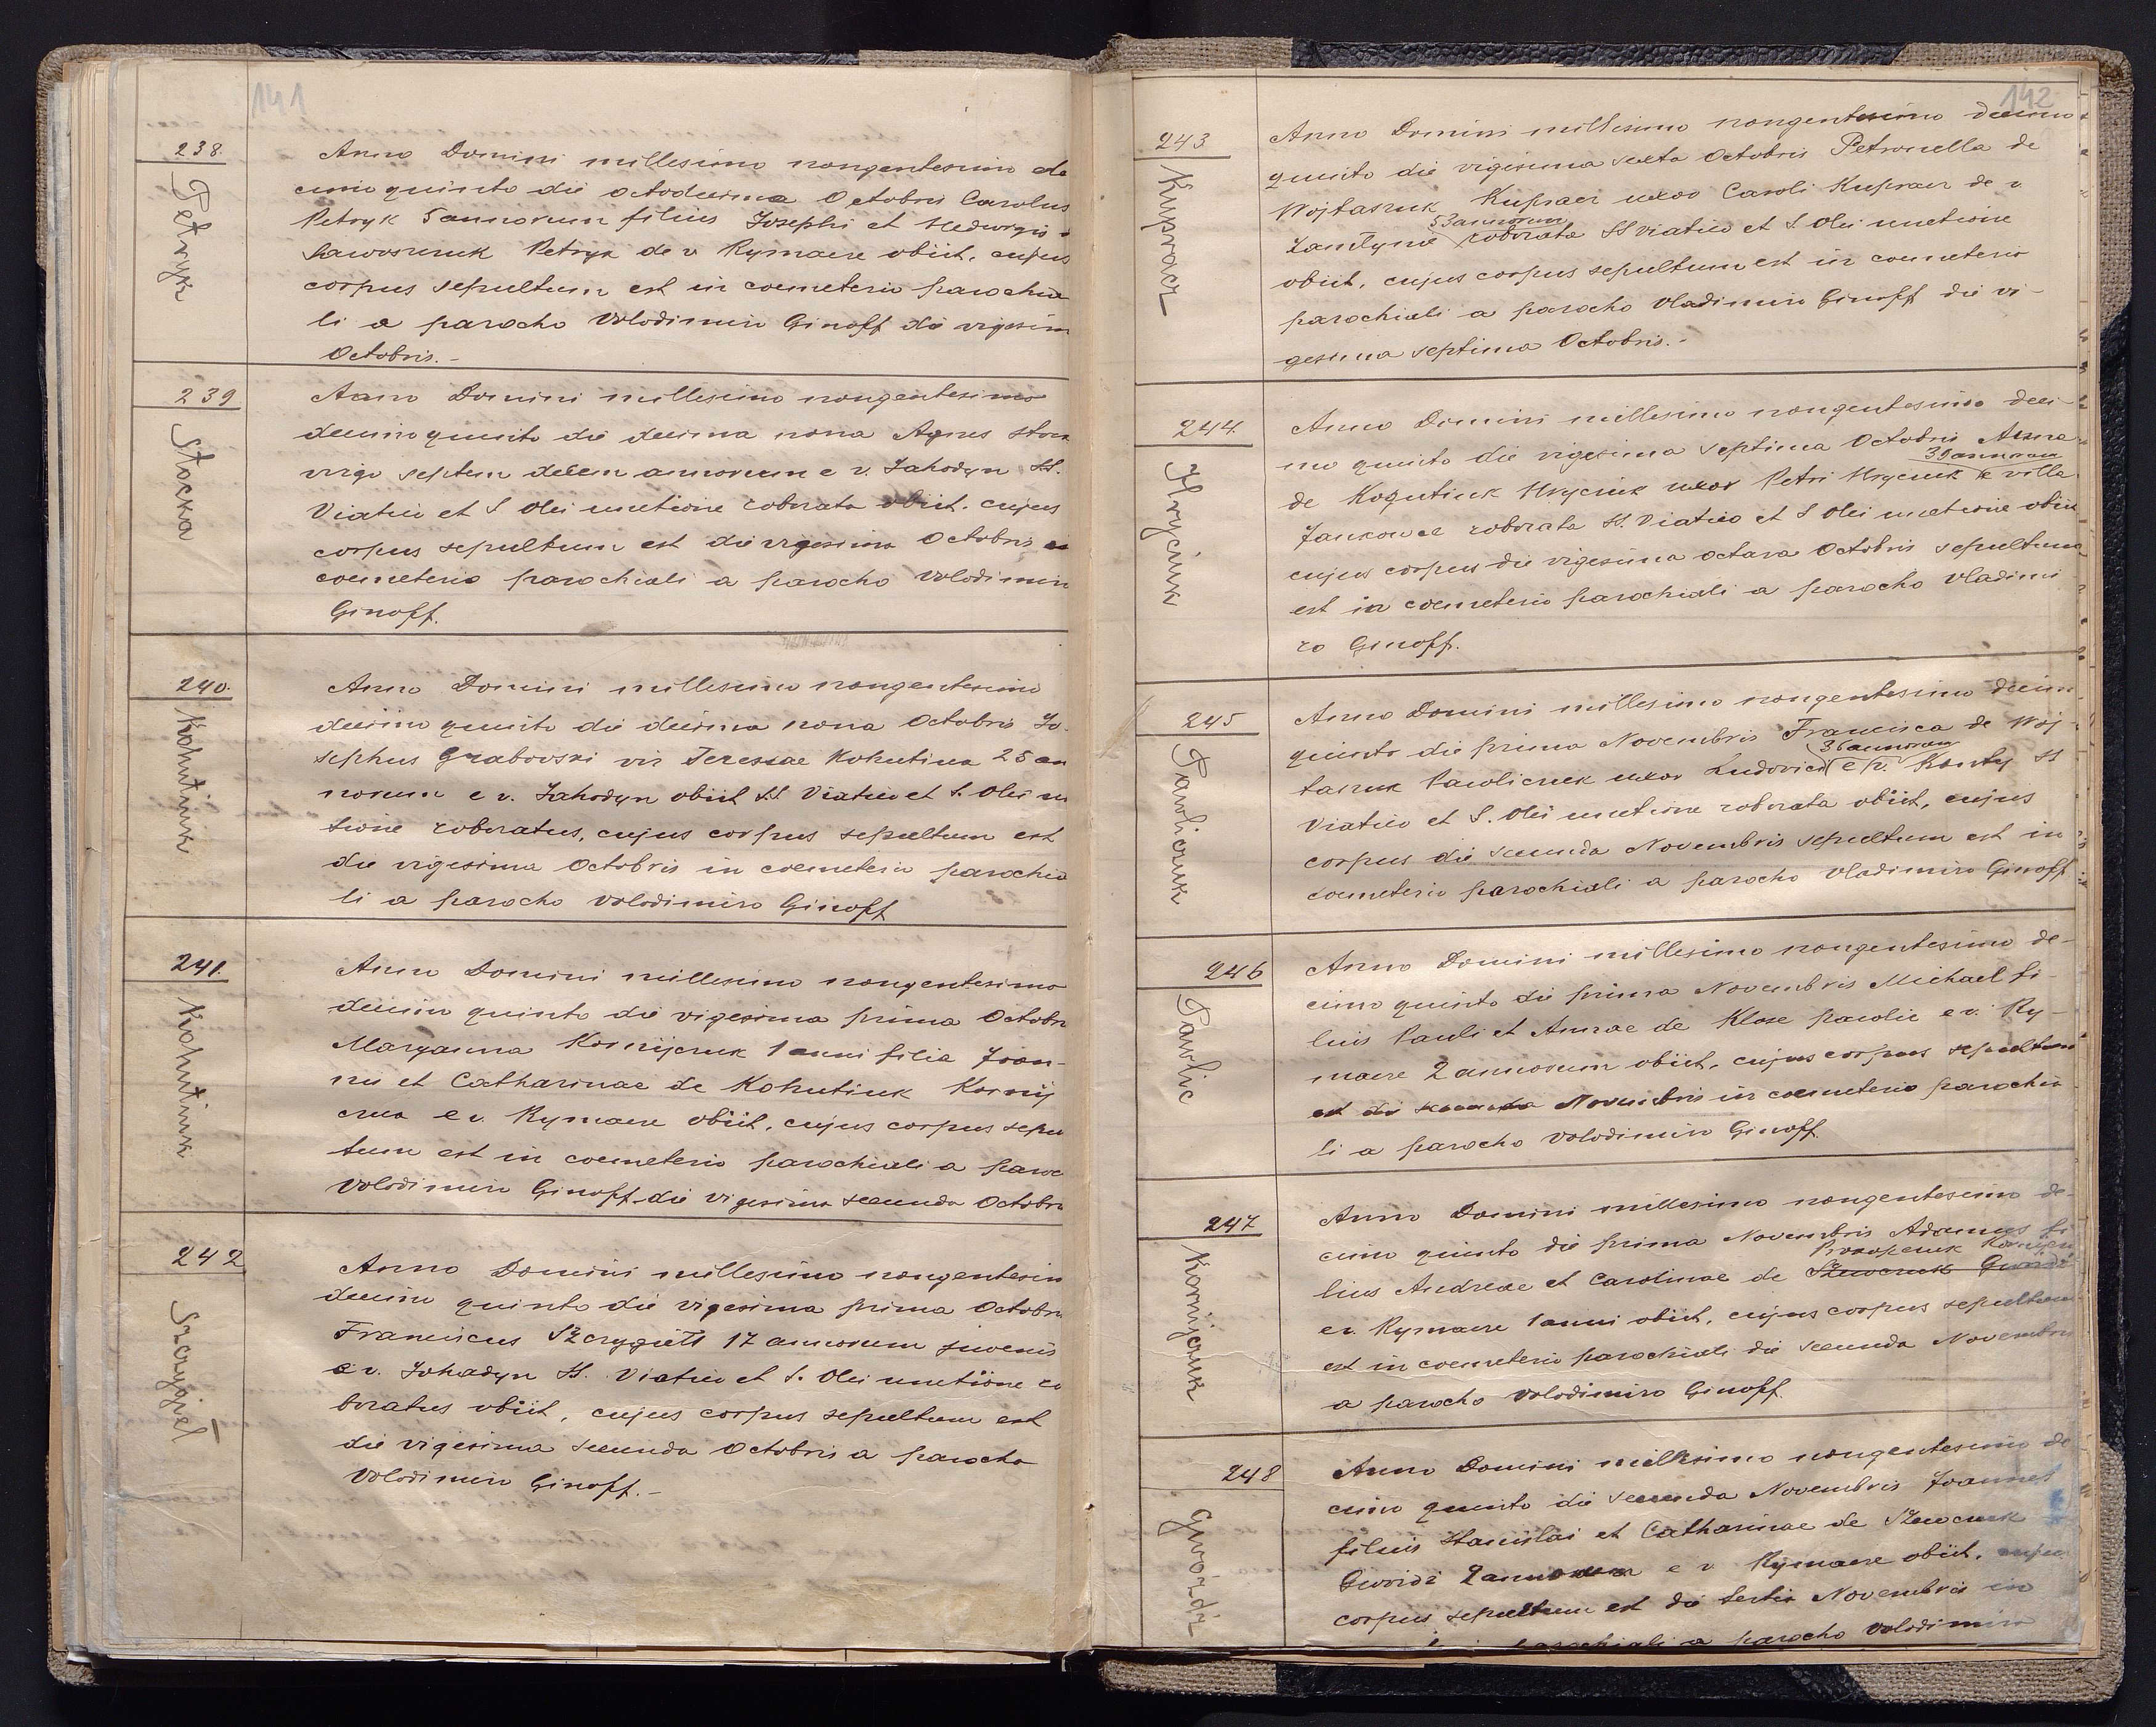 141
238.
Petryk
Anno Domini millesimo nongentesimo de
cimo quinto die octodecima Octobris Carolus
Petryk 5 annorum filius Josephi et Hedwigis
Sawosznuk Petryk de v. Rymacze obiit, cujus
corpus sepultum est in coemeterio parochia
li a parocho Volodimiro Ginoff die vigesim
Octobris.-
239
Stocka
Anno Domini millesimo nongentesimo
decimo quinto die decima nona Agnes Stock
virgo septem decem annorum e v. Jahodyn SS.
Viatico et S Olei unctione roborata obiit, cujus
corpus sepultum est die vigesima Octobris in
coemeterio parochiali a parocho Volodimiro
Ginoff.
240.
Kohutiuk
Anno Domini millesimo nongentesimo
decimo quinto die decima nona Octobris Jo-
sephus Grabovski vir Teressae Kohutiuk 25 an
norum e v. Jahodyn obiit SS Viatico et S. Olei un
tione roboratus, cujus corpus sepultum est
die vigesima Octobris in coemeterio parochia
li a parocho Volodimiro Ginoff
241.
Kohutiuk
Anno Domini millesimo nongentesimo
decimo quinto die vigesima prima Octobr
Maryanna Kornijczuk 1 anni filia Joan-
nis et Catharinae de Kohutiuk Kornij
czuk e v. Rymacze obiit, cujus corpus sepu
tum est in coemeterio parochiali a paroc
Volodimiro Ginoff die vigesima secunda Octobr
242
Szczygieł
Anno Domini millesimo nongentesim
decimo quinto die vigesima prima Octobr
Franciscus Szczygiełł 17 annorum juvenis
e v. Johadyn SS. Viatico et S. Olei unctione ro
boratus obiit, cujus corpus sepultum est
die vigesima secunda Octobris a parocho
Volodimiro Ginoff.-
142
243
Kupracz
Anno Domini millesimo nongentesimo decimo
quinto die vigesima sexta Octobris Petronella de
Wojtaszuk Kupracz uxor Caroli Kupracz de v.
53 annorum
Zamłynie roborata SS Viatico et S Olei unctione
obiit, cujus corpus sepultum est in coemeterio
parochiali a parocho Vladimiro Ginoff die vi-
gesima septima Octobris.-
244
Hryciuk
Anno Domini millesimo nongentesimo deci-
mo quinto die vigesima septima Octobris Anna
39 annorum
de Kogutiuk Hryciuk uxor Petri Hryciuk e villa
Jankowce roborata SS. Viatico et S Olei unctione obiit
cujus corpus die vigesima octava Octobris sepultum
est in coemeterio parochiali a parocho Vladimi
ro Ginoff.
245
Pawliczuk
Anno Domini millesimo nongentesimo decim
quinto die prima Novembris Francisca de Woj-
36 annorum
taszuk Pawliczuk uxor Ludovici e v. Kąty SS
Viatico et S. Olei unctione roborata obiit, cujus
corpus die secunda Novembris sepultum est in
coemeterio parochiali a parocho Vladimiro Ginoff
246
Pawlic
Anno Domini millesimo nongentesimo de-
cimo quinto die prima Novembris Michael fi-
lius Pauli et Annae de Klose Pawlic e v. Ry-
macze 2 annorum obiit, cujus corpus sepultum
est die secunda Novembris in coemeterio parochia
li a parocho Volodimiro Ginoff.
247
Kornijczuk
Anno Domini millesimo nongentesimo de-
cimo quinto die prima Novembris Adamus fi
Prokopczuk Kornijcz
lius Andreae et Carolinae de Szewczuk Gwoźdź
e v. Rymacze 1 anni obiit, cujus corpus sepultum
est in coemeterio parochiali die secunda Novembris
a parocho Volodimiro Ginoff.
248
Gwóźdź
Anno Domini millesimo nongentesimo de
cimo quinto die secunda Novembris Joannes
filius Stanislai et Catharinae de Szewczuk
Gwoźdź 2 annorum e v. Rymacze obiit, cujus
corpus sepultum est die tertia Novembris in
parochiali a parocho Volodimiro